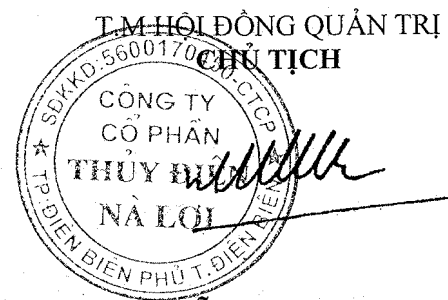 T.M HỘI ĐỒNG QUẢN TRỊ
CHỦ TỊCH
CÔNG TY
CỔ PHẦN
THỦY ĐIỆN
NÀ LƠI
TP.ĐIỆN BIÊN PHỦ T.ĐIỆN BIÊN